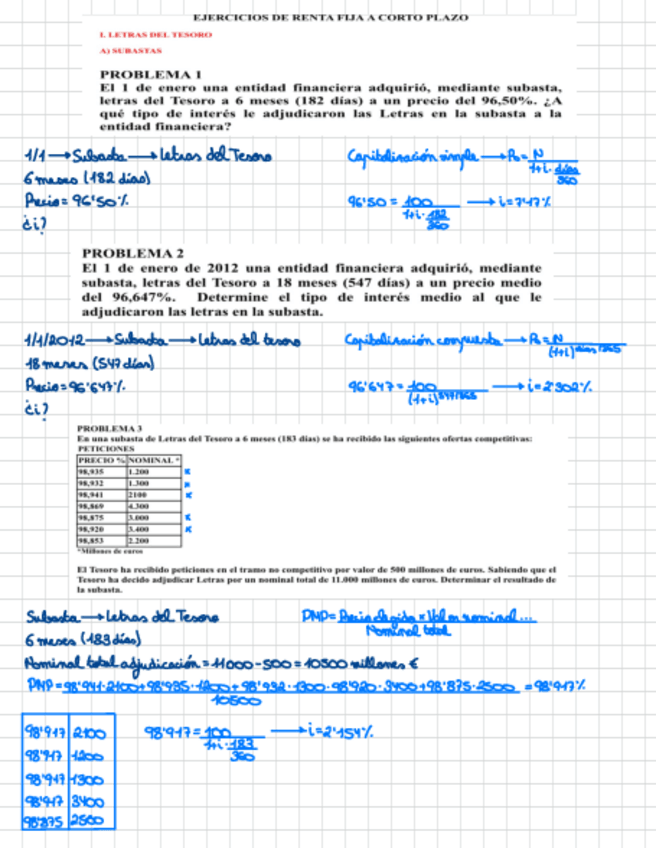 EJERCICIOS DE RENTA FIJA A CORTO PLAZO
I. LETRAS DEL TESORO
A) SUBASTAS
PROBLEMA 1
El 1 de enero una entidad financiera adquirió, mediante subasta,
letras del Tesoro a 6 meses (182 días) a un precio del 96,50%. ¿A
qué tipo de interés le adjudicaron las Letras en la subasta a la
entidad financiera?
1/1 → Subasta → Letras del Tesoro
6 meses (182 días)
Precio = 96'50%
¿i?
Capitalización simple → P₀ = N
1+i· días
360
96'50 = 100 → i = 7'47%
1+i· 182
360
PROBLEMA 2
El 1 de enero de 2012 una entidad financiera adquirió, mediante
subasta, letras del Tesoro a 18 meses (547 días) a un precio medio
del 96,647%. Determine el tipo de interés medio al que le
adjudicaron las letras en la subasta.
1/1/2012 → Subasta → Letras del tesoro
18 meses (547 días)
Precio = 96'647%
¿i?
Capitalización compuesta → P₀ = N
(1+i) días/365
96'647 = 100 → i = 2'302%
(1+i) 547/365
PROBLEMA 3
En una subasta de Letras del Tesoro a 6 meses (183 días) se ha recibido las siguientes ofertas competitivas:
PETICIONES
PRECIO % NOMINAL *
98,935 1.200 x
98,932 1.300 x
98,941 2100 x
98,869 4.300
98,875 3.000 x
98,920 3.400 x
98,853 2.200
*Millones de euros
El Tesoro ha recibido peticiones en el tramo no competitivo por valor de 500 millones de euros. Sabiendo que el
Tesoro ha decido adjudicar Letras por un nominal total de 11.000 millones de euros. Determinar el resultado de
la subasta.
Subasta → Letras del Tesoro
6 meses (183 días)
PMP = Precio elegido × Valor nominal...
Nominal total
Nominal total adjudicación = 11000 - 500 = 10500 millones €
PMP = 98'941·2100+98'935·1200+98'932·1300·98'920·3400+98'875·2500 = 98'917%
10500
98'917 2100
98'917 1200
98'917 1300
98'917 3400
98'875 2500
98'917 = 100 → i = 2'154%
1+i· 183
360